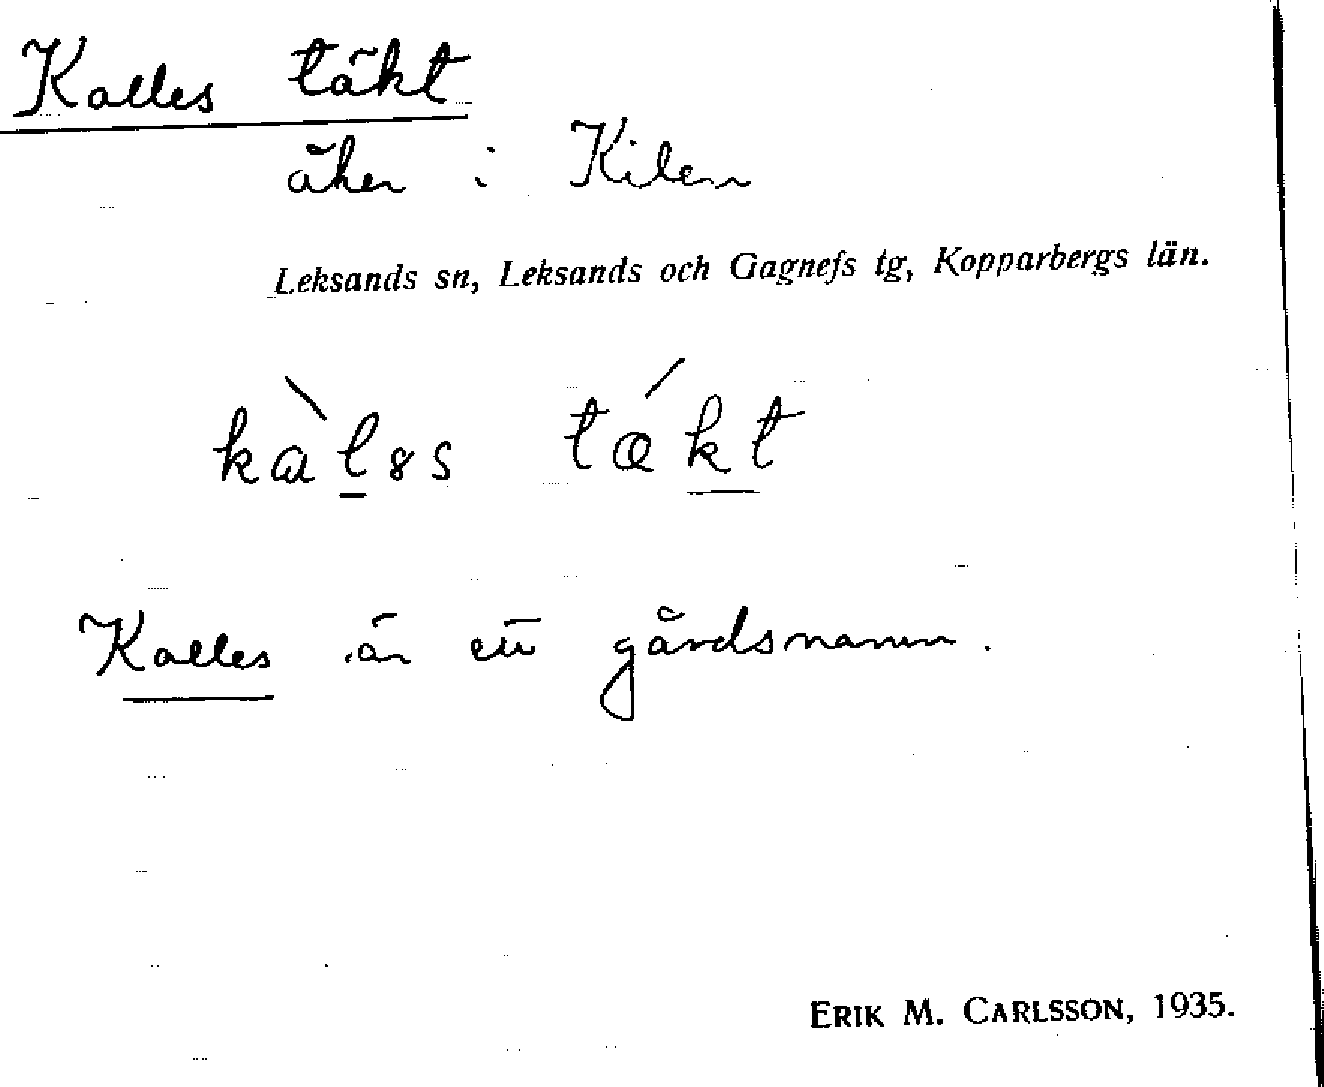 Kalles täkt
åker i Kilen
Leksands sn, Leksands och Gagnefs tg, Kopparbergs län.
kàl̲ɞs tǽk̲t̲
Kalles är ett gårdsnamn.
ERIK M. CARLSSON, 1935.